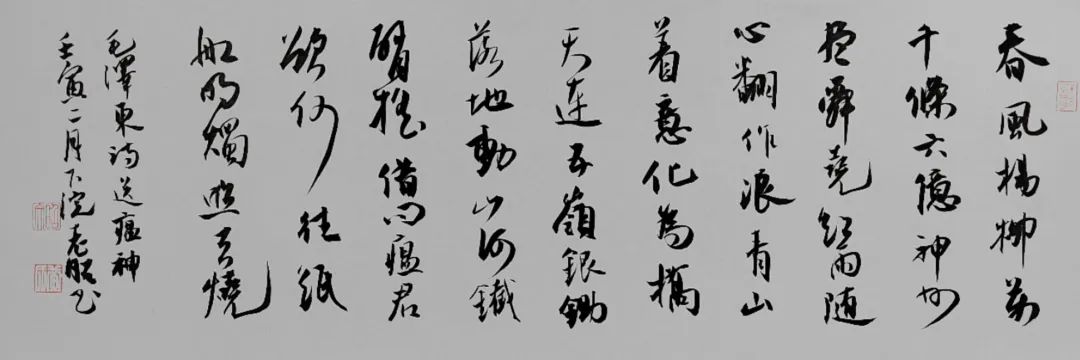 春風楊柳萬
千條六億神州
盡舜堯紅雨隨
心翻作浪青山
着意化為橋
天連五嶺銀鋤
落地動山河鐵
臂搖借問瘟君
欲何往紙
船明燭照天燒
毛澤東詩送瘟神
壬寅二月下浣老书